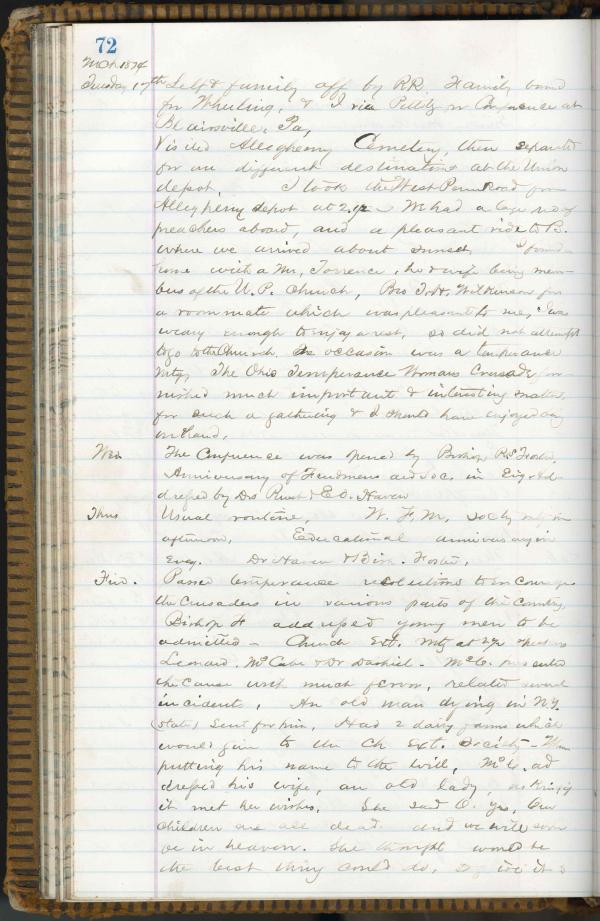 72
Mch. 1874
Tuesday 17th Self & family off by RR. Family bound
for Wheeling, & I via Pittbg for Conference at
Blairsville, Pa,
Visited Allegheny Cemetery, then separated
for our different destinations at the Union
depot. I took the West Penn Road from
Allegheny depot at 2. We had a large no of
preachers aboard, and a pleasant ride to B.
where we arrived about sunset I found
home with a Mr, Torrence, he & wife being mem-
bers of the U. P. Church, Bro J. H. Wilkinson for
a room mate which was pleasant to me, I was
weary enough to enjoy a rest, so did not attempt
to go to the Church, The occasion was a temperance
mtg, The Ohio Temperance Womans Crusade fur-
nished much important & interesting matter,
for such a gathering & I should have enjoyed being
on hand.
Wed. The Conference was opened by Bishop R S Foster,
Anniversary of Freedmens aid Soc. in Evg Ad-
dressed by Drs Rust & E. O. Haven
Thus Usual routine, W. F. M, Socty mtg in
afternoon, Educational anniversary in
Eveg. Dr Haven & Bish. Foster,
Frid. Passed temperance resolutions to encourage
the Crusaders in various parts of the Country,
Bishop F addressed young men to be
admitted - Church Ext. Mtg at
Leonard, McCabe & Dr Dashiel - McC. presented
the cause with much fervor, related several
incidents, An old man dying in N.Y.
(state) sent for him, Had 2 dairy farms which
would give to the Ch Ext. Society - When
putting his name to the will, McC. ad
dressed his wife, an old lady, asking if
it met her wishes, She said O. yes, Our
children are all dead and we will soon
be in heaven. She thought would be
the best thing could do,